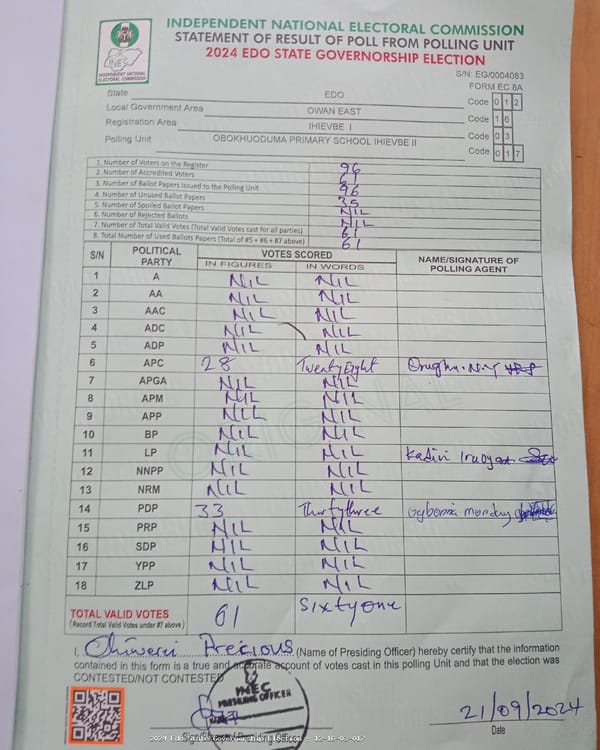 INDEPENDENT NATIONAL ELECTORAL COMMISSION
STATEMENT OF RESULT OF POLL FROM POLLING UNIT
2024 EDO STATE GOVERNORSHIP ELECTION
INEC
INDEPENDENT NATIONAL ELECTORAL COMMISSION
S/N: EG/0004083
FORM EC 8A
State EDO Code 0 1 2
Local Government Area OWAN EAST Code 1 6
Registration Area IHIEVBE I Code 0 3
Polling Unit OBOKHUODUMA PRIMARY SCHOOL IHIEVBE II Code 0 1 7
1. Number of Voters on the Register 96
2. Number of Accredited Voters
3. Number of Ballot Papers Issued to the Polling Unit 96
4. Number of Unused Ballot Papers 35
5. Number of Spoiled Ballot Papers NIL
6. Number of Rejected Ballots NIL
7. Number of Total Valid Votes (Total Valid Votes cast for all parties) 61
8. Total Number of Used Ballots Papers (Total of #5 + #6 + #7 above) 61
S/N POLITICAL PARTY VOTES SCORED NAME/SIGNATURE OF POLLING AGENT
IN FIGURES IN WORDS
1 A NIL NIL
2 AA NIL NIL
3 AAC NIL NIL
4 ADC NIL NIL
5 ADP NIL NIL
6 APC 28 Twenty Eight
7 APGA NIL NIL
8 APM NIL NIL
9 APP NIL NIL
10 BP NIL NIL
11 LP NIL NIL Kadiri
12 NNPP NIL NIL
13 NRM NIL NIL
14 PDP 33 Thirtythree monday
15 PRP NIL NIL
16 SDP NIL NIL
17 YPP NIL NIL
18 ZLP NIL NIL
TOTAL VALID VOTES 61 Sixty one
(Record Total Valid Votes under #7 above)
I, Precious (Name of Presiding Officer) hereby certify that the information
contained in this form is a true and accurate account of votes cast in this polling Unit and that the election was
CONTESTED/NOT CONTESTED
INEC
PRESIDING OFFICER
21/09/2024
Date